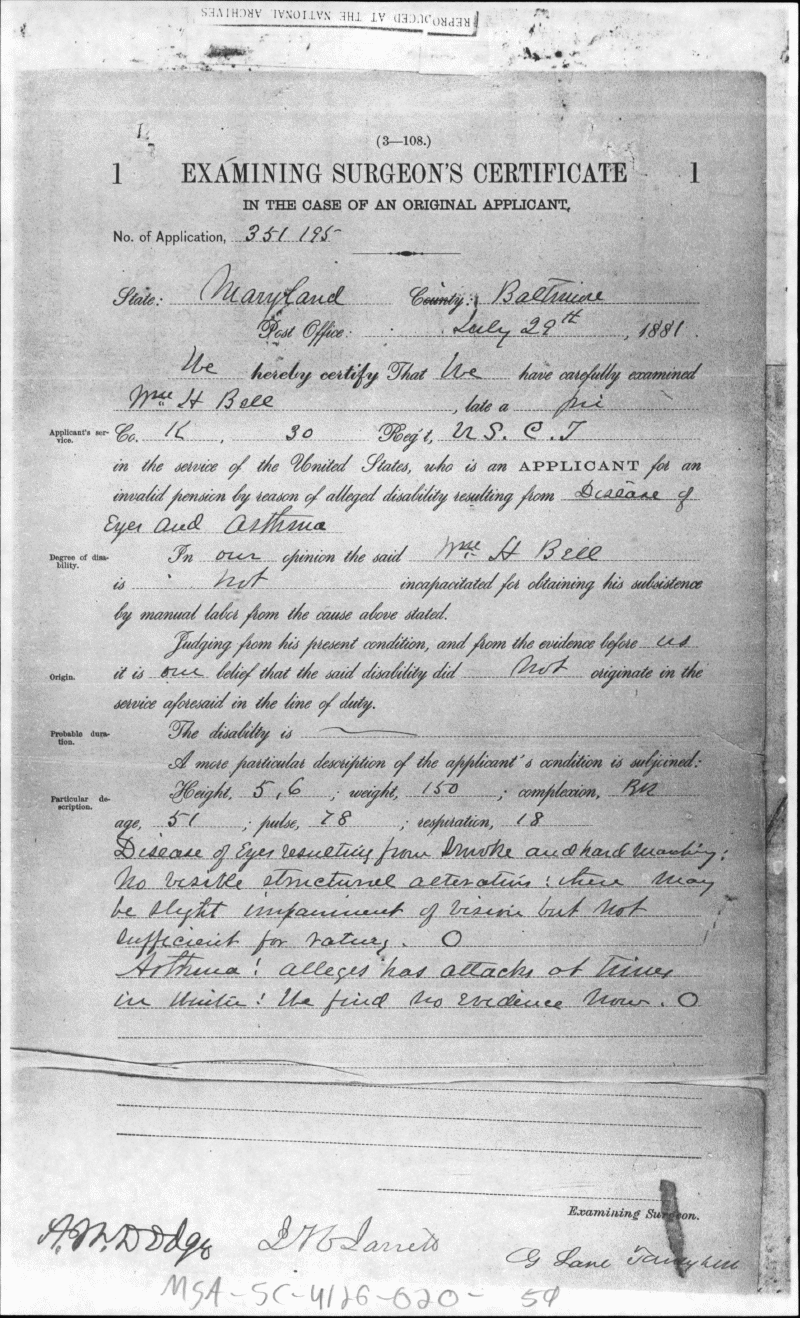 REPRODUCED AT THE NATIONAL ARCHIVES
(3—108.)
1 EXAMINING SURGEON'S CERTIFICATE 1
IN THE CASE OF AN ORIGINAL APPLICANT,
No. of Application, 351 195
State: Maryland County: Baltimore
Post Office: July 29th, 1881.
We hereby certify That We have carefully examined
Wm H Bell, late a pri
Applicant's service. Co. K, 30 Reg't, U S. C. T
in the service of the United States, who is an APPLICANT for an
invalid pension by reason of alleged disability resulting from Disease of
Eyes and Asthma
Degree of disability. In our opinion the said Wm H Bell
is not incapacitated for obtaining his subsistence
by manual labor from the cause above stated.
Judging from his present condition, and from the evidence before us
Origin. it is our belief that the said disability did Not originate in the
service aforesaid in the line of duty.
Probable duration. The disabilty is
A more particular description of the applicant's condition is subjoined:
Particular description. Height, 5,6; weight, 150; complexion, Bk
age, 51; pulse, 78; respiration, 18
Disease of Eyes resulting from Smoke and hard Marching:
No visible structural alteration: there may
be slight impairment of vision but not
sufficient for rating. O
Asthma: alleges has attacks at times
in Winter: We find no evidence now. O
Examining Surgeon.
A. W. Dodge J H Jarrett
G Lane
MSA-SC-4126-020- 54